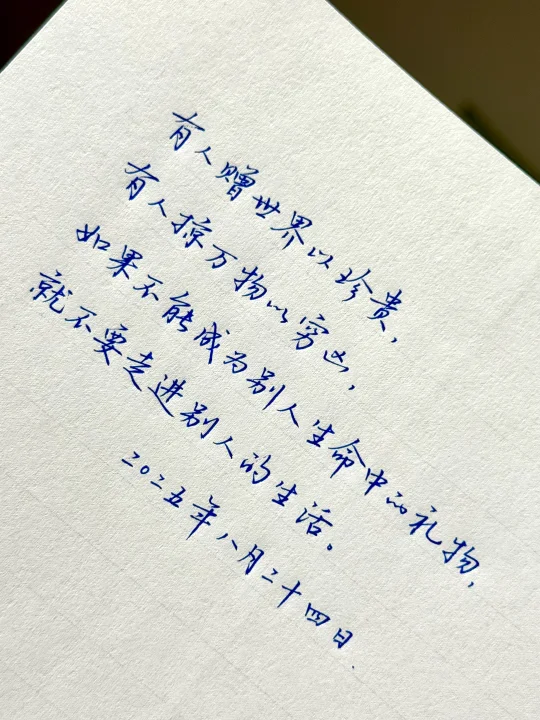 有人赠世界以珍贵，
有人掠万物以穷凶，
如果不能成为别人生命中的礼物，
就不要走进别人的生活。
二〇二五年八月二十四日.